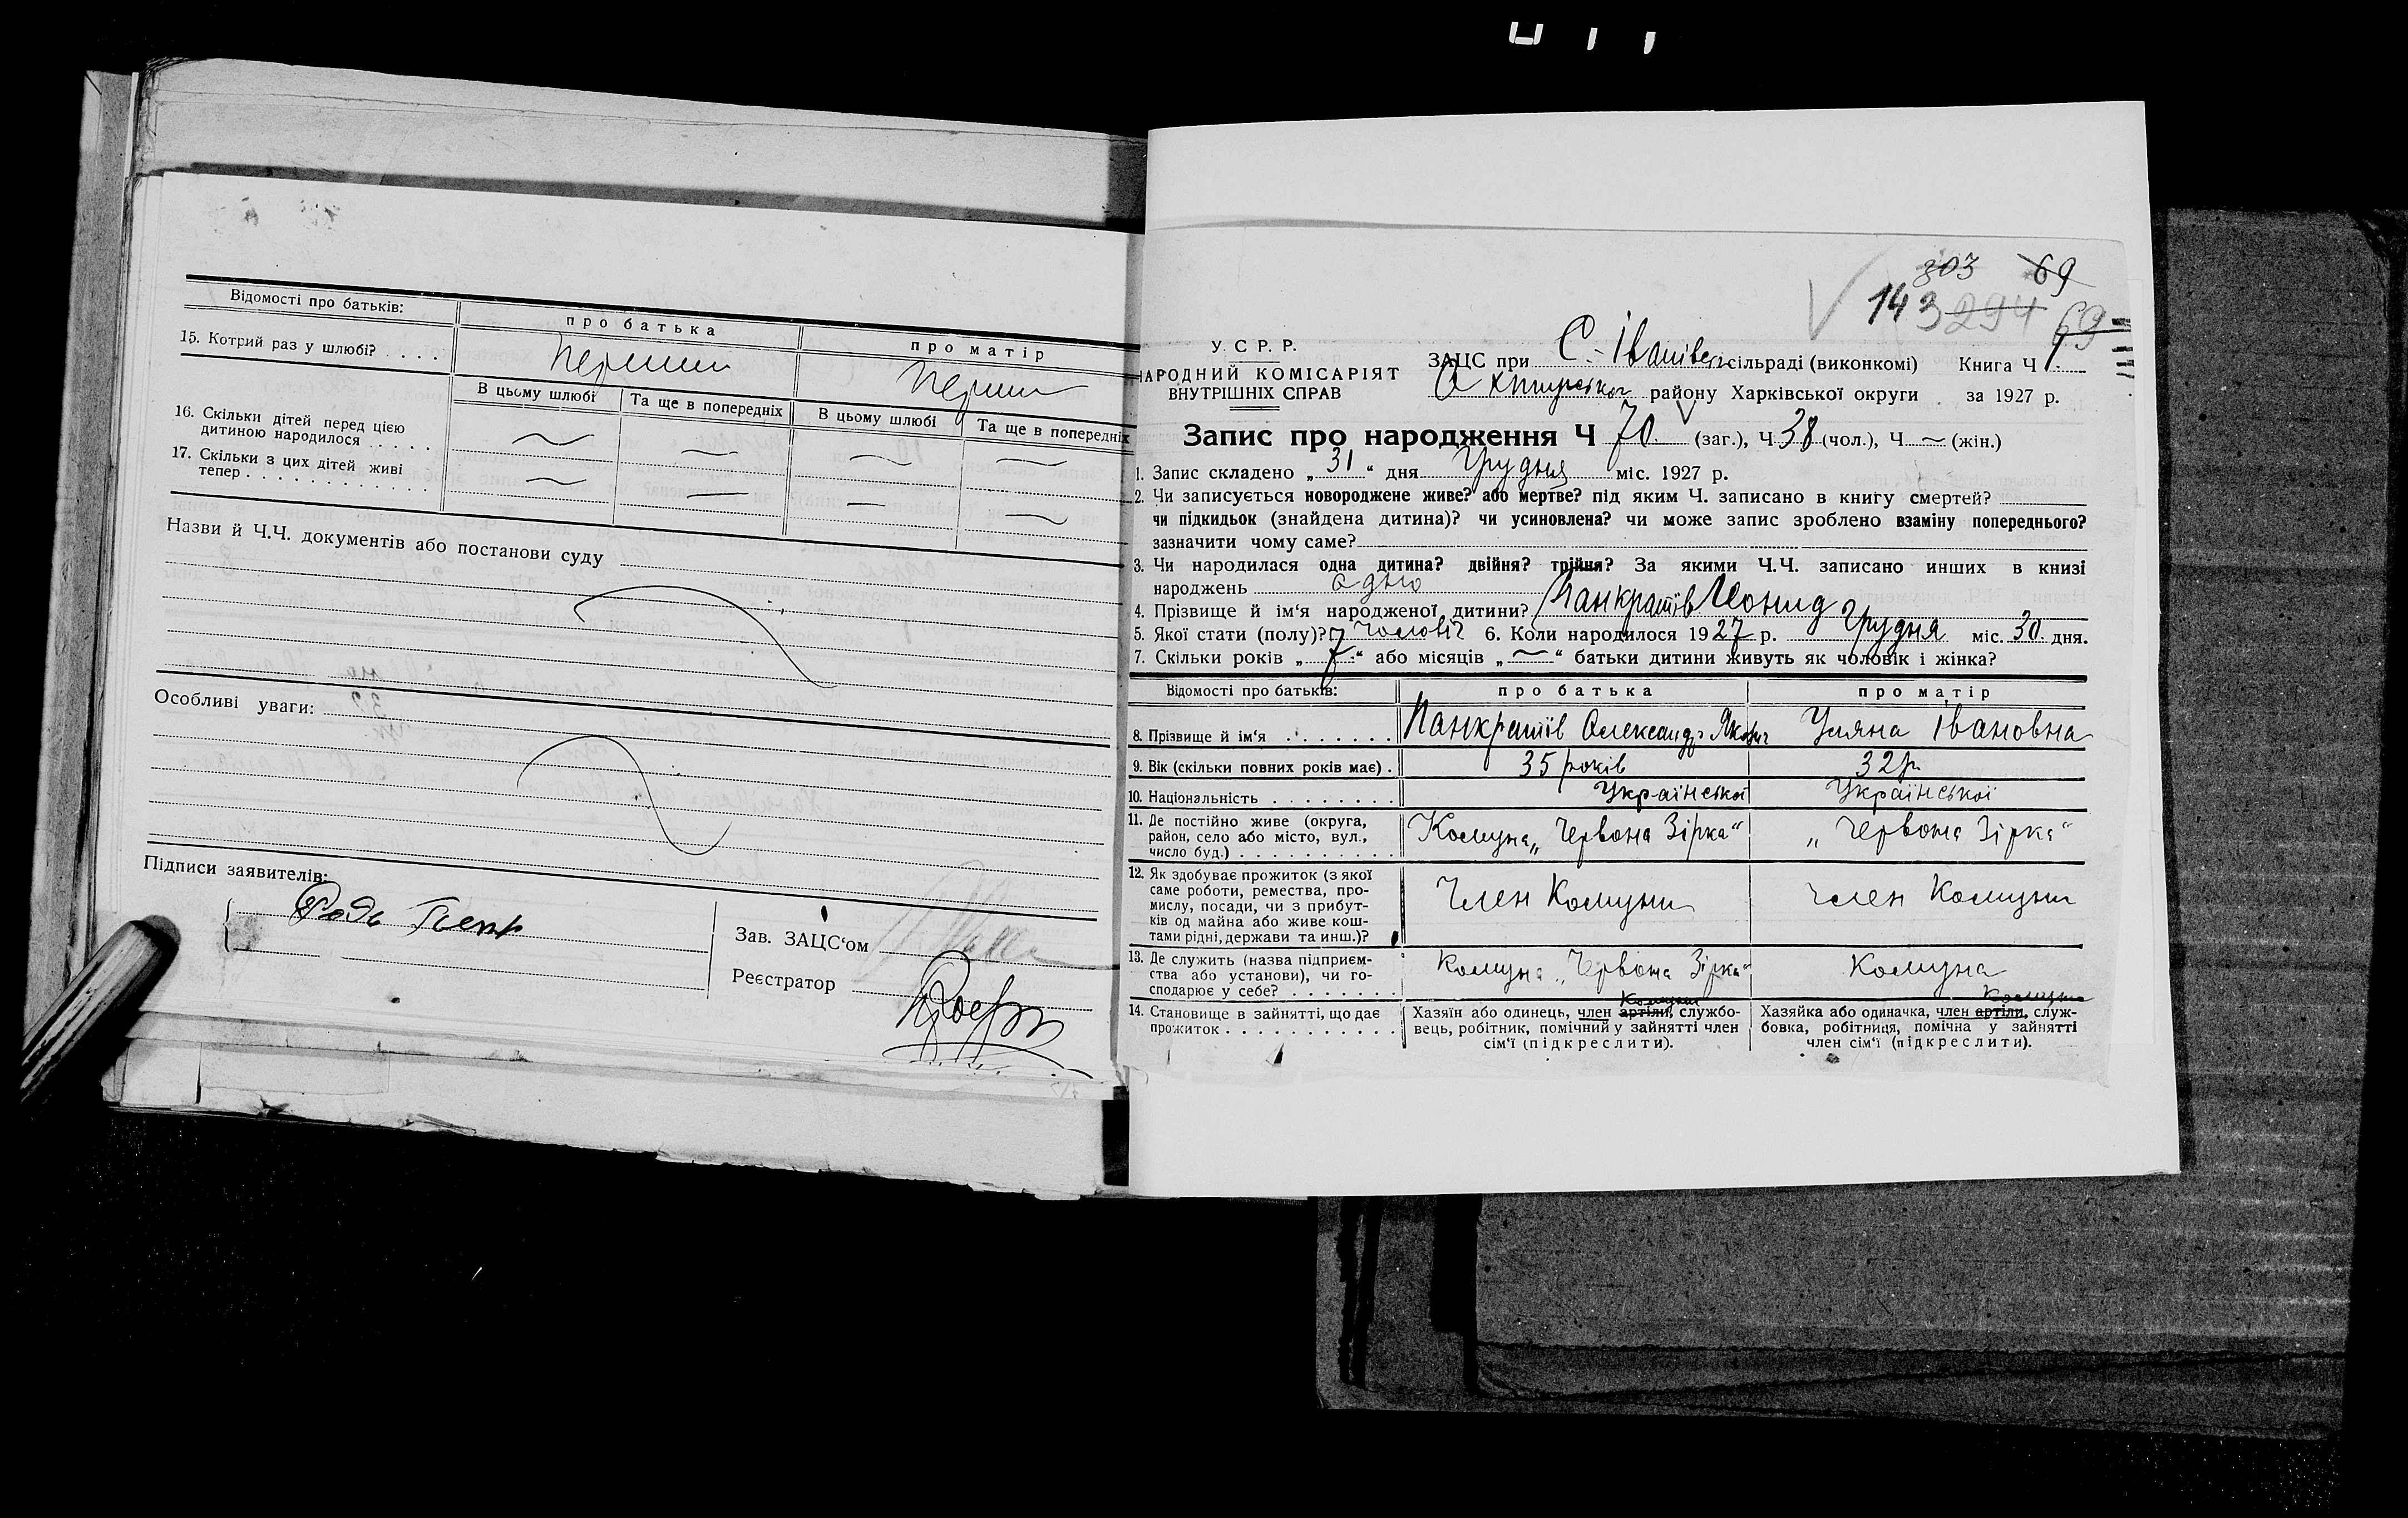 Відомості про батьків:
про батька
про матір
15. Котрий раз у шлюбі? . . . .
перший
перший
В цьому шлюбі
Та ще в попередніх
В цьому шлюбі
Та ще в попередніх
16. Скільки дітей перед цією
дитиною народилося . . . .
17. Скільки з цих дітей живі
тепер . . . . . . . . . . . .
Назви й Ч.Ч. документів або постанови суду
Особливі уваги:
Підписи заявителів:
Зав. ЗАЦС‘ом
Реєстратор
803 69
143 294 69
У. С. Р. Р.
НАРОДНИЙ КОМІСАРІЯТ
ВНУТРІШНІХ СПРАВ
ЗАЦС при С.-Іванівск сільраді (виконкомі) Книга Ч 1
району Харківської округи за 1927 р.
Запис про народження Ч 70 (заг.), Ч 38 (чол.), Ч ~ (жін.)
1. Запис складено „31“ дня Грудня міс. 1927 р.
2. Чи записується новороджене живе? або мертве? під яким Ч. записано в книгу смертей?
чи підкидьок (знайдена дитина)? чи усиновлена? чи може запис зроблено взаміну попереднього?
зазначити чому саме?
3. Чи народилася одна дитина? двійня? трійня? За якими Ч.Ч. записано инших в книзі
народжень одно
4. Прізвище й ім‘я народженої дитини? Панкратів Леонид
5. Якої стати (полу)? Чоловіч 6. Коли народилося 1927 р. Грудня міс. 30 дня.
7. Скільки років „7“ або місяців „~“ батьки дитини живуть як чоловік і жінка?
Відомості про батьків:
про батька
про матір
8. Прізвище й ім‘я . . . . . . .
Панкратів Олександр Якович
Уляна Івановна
9. Вік (скільки повних років має) .
35 років
32 р
10. Національність . . . . . . . .
Української
Української
11. Де постійно живе (округа,
район, село або місто, вул.,
число буд.) . . . . . . . . . .
Комуна „Червона Зірка“
„Червона Зірка“
12. Як здобуває прожиток (з якої
саме роботи, ремества, про-
мислу, посади, чи з прибут-
ків од майна або живе кош-
тами рідні, держави та инш.)?
Член Комуни
Член Комуни
13. Де служить (назва підприєм-
ства або установи), чи го-
сподарює у себе? . . . . . . .
Комуна „Червона Зірка“
Комуна
14. Становище в зайнятті, що дає
прожиток . . . . . . . . . . .
Комуни
Хазяїн або одинець, член артіли, службо-
вець, робітник, помічний у зайнятті член
сім‘ї (підкреслити).
Комуни
Хазяйка або одиначка, член артіли, служ-
бовка, робітниця, помічна у зайнятті
член сім‘ї (підкреслити).